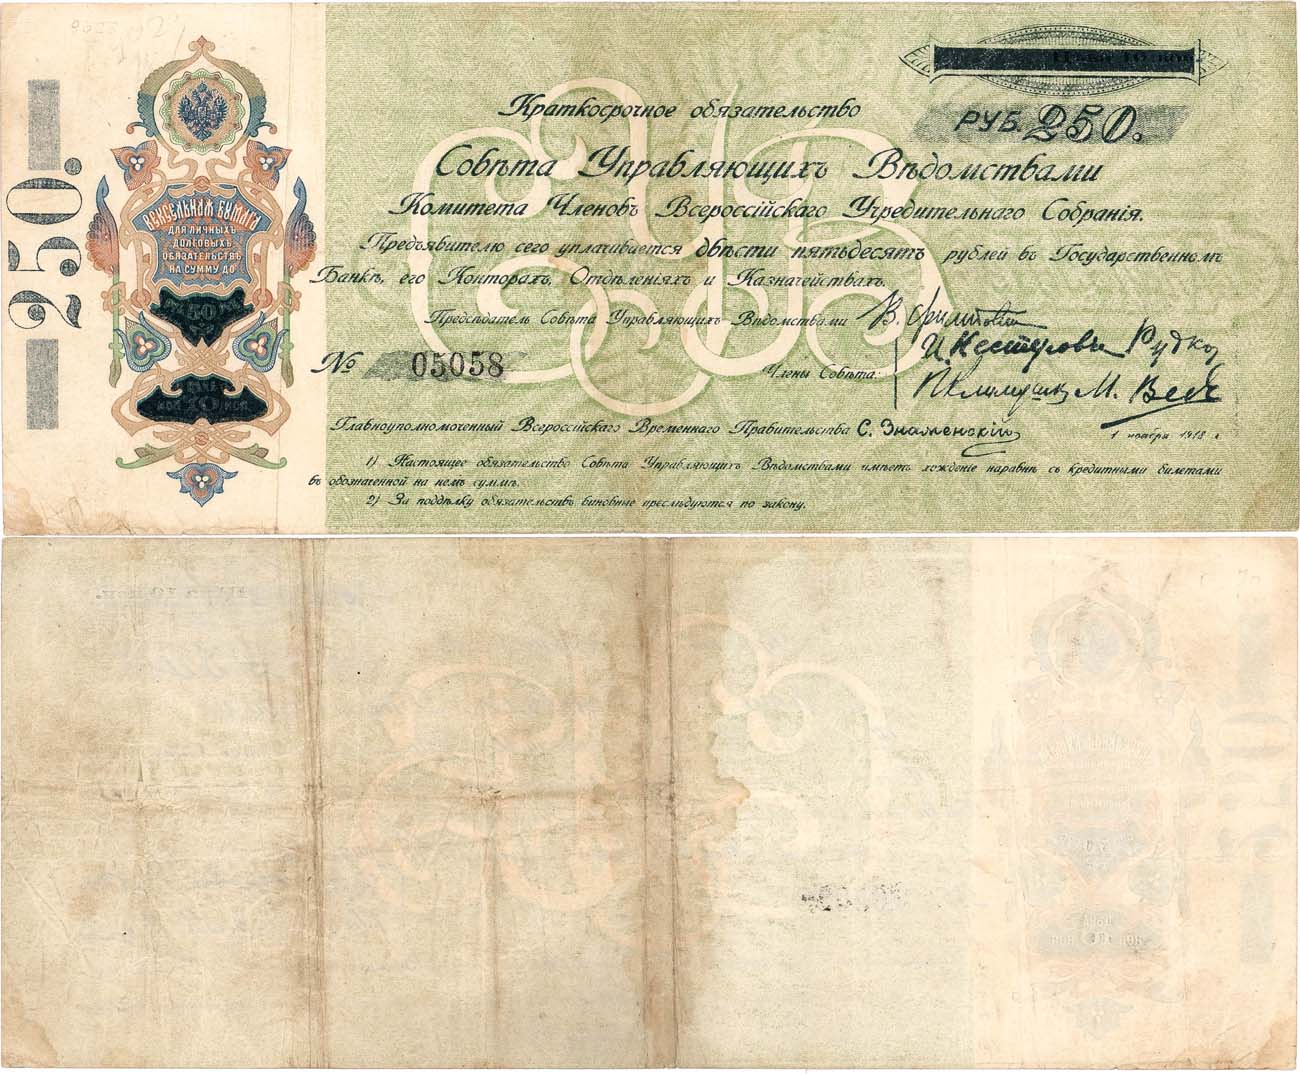 250.
ВЕКСЕЛЬНАЯ БУМАГА
ДЛЯ ЛИЧНЫХЪ
ДОЛГОВЫХЪ
ОБЯЗАТЕЛЬСТВЪ
НА СУММУ ДО
50
КОП. 10 КОП.
Краткосрочное обязательство
РУБ. 250.
Совѣта Управляющихъ Вѣдомствами
Комитета Членовъ Всероссійскаго Учредительнаго Собранія.
Предъявителю сего уплачивается двѣсти пятьдесятъ рублей въ Государственномъ
Банкѣ, его Конторахъ, Отдѣленіяхъ и Казначействахъ.
Предсѣдатель Совѣта Управляющихъ Вѣдомствами В. Филипповскій
И. Нестеровъ Рудко
№ 05058
Члены Совѣта:
П. Климушкинъ М. Веденяпинъ
Главноуполномоченный Всероссійскаго Временнаго Правительства С. Знаменскій
1 ноября 1918 г.
1) Настоящее обязательство Совѣта Управляющихъ Вѣдомствами имѣетъ хожденіе наравнѣ съ кредитными билетами
въ обозначенной на немъ суммѣ.
2) За поддѣлку обязательствъ виновные преслѣдуются по закону.